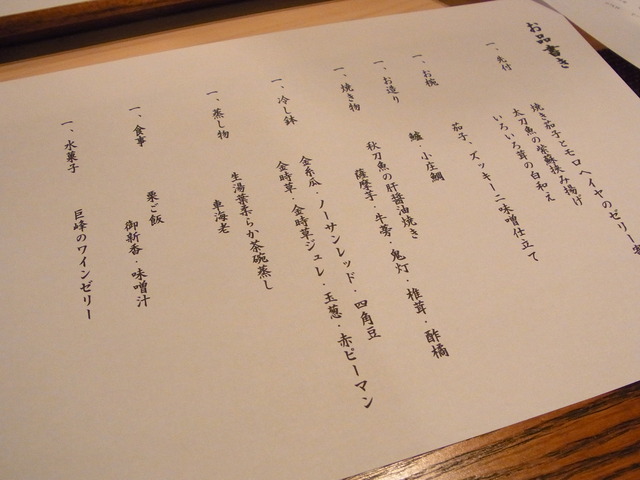 お品書き
一、先付
焼き茄子とモロヘイヤのゼリー寄
太刀魚の紫蘇挟み揚げ
いろいろ茸の白和え
一、お椀
茄子、ズッキーニ味噌仕立て
一、お造り
鱸・小庄鯛
一、焼き物
秋刀魚の肝醤油焼き
薩摩芋・牛蒡・鬼灯・椎茸・酢橘
一、冷し鉢
金糸瓜・ノーサンレッド・四角豆
金時草・金時草ジュレ・玉葱・赤ピーマン
一、蒸し物
生湯葉柔らか茶碗蒸し
車海老
一、食事
栗ご飯
御新香・味噌汁
一、水菓子
巨峰のワインゼリー